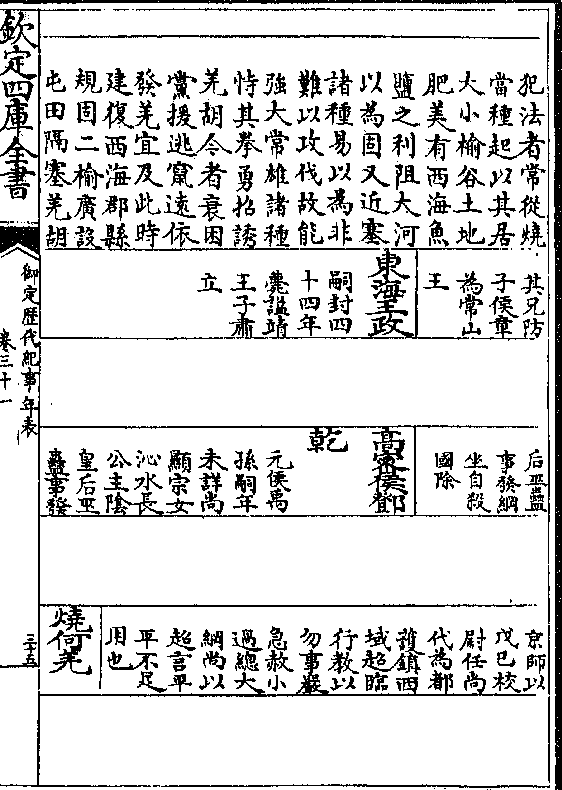 欽定四庫全書
御定歷代紀事年表
卷三十一
三十五
犯法者常從燒
當種起以其居
大小榆谷土地
肥美有西海魚
鹽之利阻大河
以為固又近塞
諸種易以為非
難以攻伐故能
強大常雄諸種
恃其拳勇招誘
羌胡今者衰困
黨援逃竄遠依
發羌宜及此時
建復西海郡縣
規固二榆廣設
屯田隔塞羌胡
其兄防
子侯章
為常山
王
東海王政
嗣封四
十四年
薨諡靖
王子肅
立
后巫蠱
事發綱
坐自殺
國除
高密侯鄧
乾
元侯禹
孫嗣年
未詳尚
顯宗女
沁水長
公主陰
皇后巫
蠱事發
京師以
戊巳校
尉任尚
代為都
護鎮西
域超臨
行教以
勿事嚴
急赦小
過總大
綱尚以
超言平
平不足
用也
燒何羌